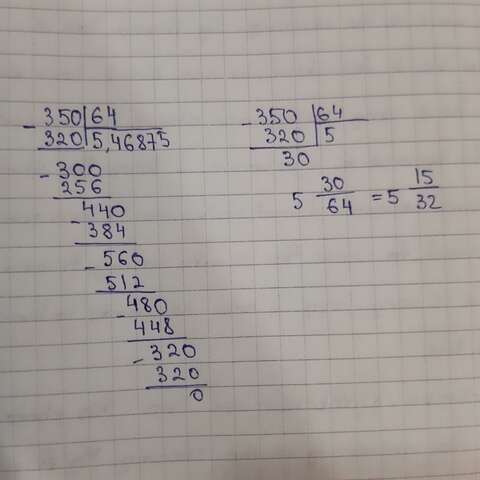 - 350 64
320 5,46875
- 300
256
- 440
384
- 560
512
- 480
448
- 320
320
0
- 350 64
320 5
30
5 30/64 = 5 15/32